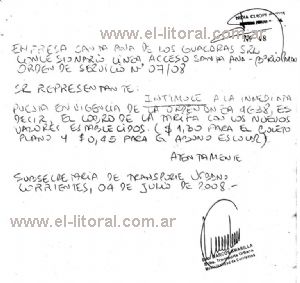 www.el-litoral.com.ar
EMPRESA SANTA ANA DE LOS GUACARAS SRL
CONCESIONARIO LINEA ACCESO SANTA ANA -
ORDEN DE SERVICIO Nº 07/08
SR REPRESENTANTE:
INTIMOLE A LA INMEDIATA
PUESTA EN VIGENCIA DE LA ORDENANZA 4638, ES
DECIR, EL COBRO DE LA TARIFA CON LOS NUEVOS
VALORES ESTABLECIDOS. ($ 1,30 PARA EL BOLETO
PLANO Y $ 0,45 PARA EL ABONO ESCOLAR)
ATENTAMENTE
www.el-litoral.com.ar
SUBSECRETARIA DE TRANSPORTE URBANO
CORRIENTES, 04 DE JULIO DE 2008 -
www.el-litoral.com.ar